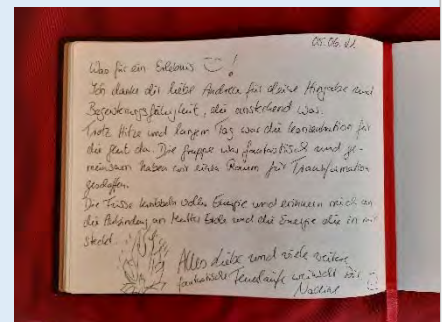 05.06.21
Was für ein Erlebnis !
Ich danke dir liebe Andrea für deine Hingabe und
Begeisterungsfähigkeit, die ansteckend war.
Trotz Hitze und langem Tag war die Konzentration für
die Glut da. Die Gruppe war fantastisch und ge-
meinsam haben wir einen Raum für Transformation
geschaffen.
Die Füsse kribbeln voller Energie und erinnern mich an
die Verbindung an Mutter Erde und die Energie die in mir
steckt.
Alles Liebe und viele weitere
fantastische Feuerläufe wünscht dir
Nadine